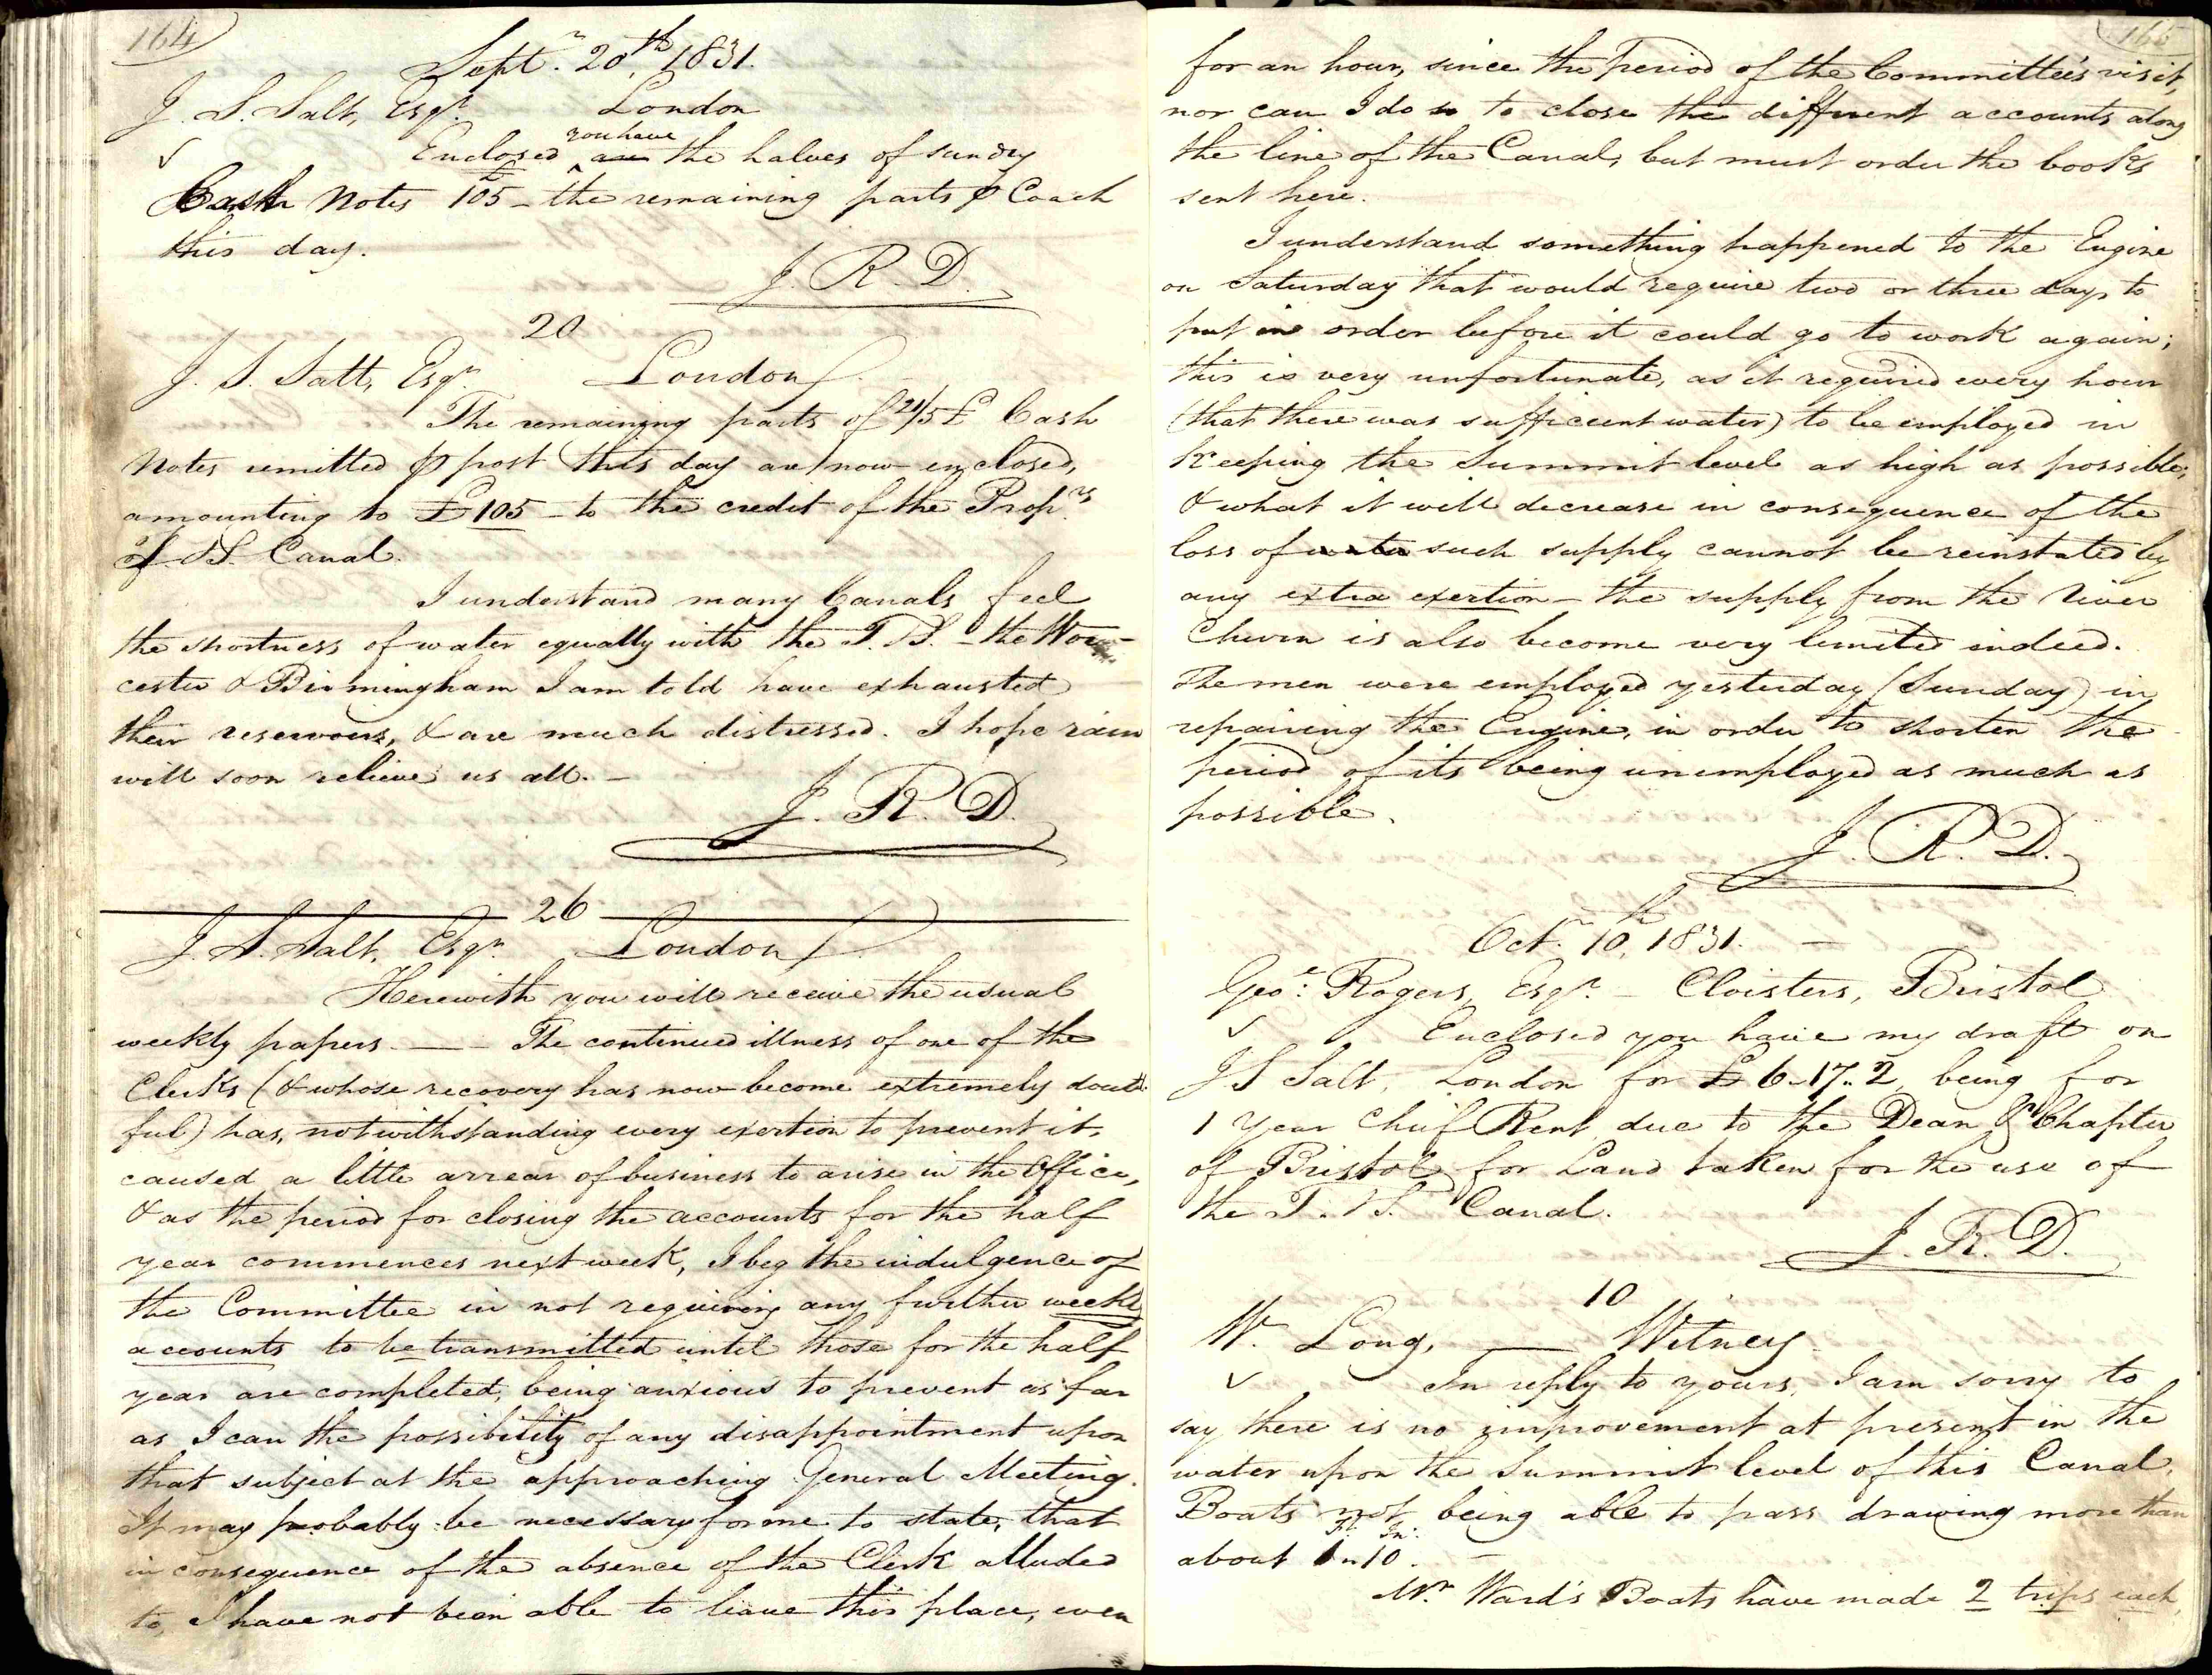 164
Septr. 20th, 1831.
J. S. Salt, Esqr. London
you have
Enclosed are the halves of sundry
Cash Notes £105 - the remaining parts ⅌ Coach
this day.
J. R. D.
20
J. S. Salt, Esqr. London
The remaining parts of 21/5£ Cash
Notes remitted ⅌ post this day are now enclosed,
amounting to £105 - to the credit of the Proprs
of T.S. Canal.
I understand many Canals feel
the shortness of water equally with the T.S. - the Wor-
cester & Birmingham I am told have exhausted
their reservoirs, & are much distressed. I hope rain
will soon relieve us all. -
J. R. D.
26
J. S. Salt, Esqr. London
Herewith you will receive the usual
weekly papers. — The continued illness of one of the
Clerks (& whose recovery has now become extremely doubt
ful) has, notwithstanding every exertion to prevent it,
caused a little arrear of business to arise in the Office,
& as the period for closing the accounts for the half
year commences next week, I beg the indulgence of
the Committee in not requiring any further weekly
accounts to be transmitted until those for the half
year are completed, being anxious to prevent as far
as I can the possibility of any disappointment upon
that subject at the approaching General Meeting.
It may probably be necessary for me to state, that
in consequence of the absence of the Clerk alluded
to, I have not been able to leave this place, even
165
for an hour, since the period of the Committee's visit,
nor can I do so to close the different accounts along
the line of the Canal, but must order the books
sent here.
I understand something happened to the Engine
on Saturday that would require two or three days to
put in order before it could go to work again;
this is very unfortunate, as it required every hour
(that there was sufficient water) to be employed in
keeping the Summit level as high as possible,
& what it will decrease in consequence of the
loss of water such supply cannot be reinstated by
any extra exertion - the supply from the River
Churn is also become very limited indeed.
The men were employed yesterday (Sunday) in
repairing the Engine, in order to shorten the
period of its being unemployed as much as
possible.
J. R. D.
Octr. 10th, 1831. —
Geoe: Rogers, Esqr. - Cloisters, Bristol
Enclosed you have my draft on
J S Salt, London for £6-17-2, being for
1 Year Chief Rent due to the Dean & Chapter
of Bristol for Land taken for the use of
the T. S. Canal.
J. R. D.
10
W. Long, — Witney
In reply to yours, I am sorry to
say there is no improvement at present in the
water upon the Summit level of this Canal,
Boats not being able to pass drawing more than
Ft. In:
about 1 " 10. —
Mr. Ward's Boats have made 2 trips each,